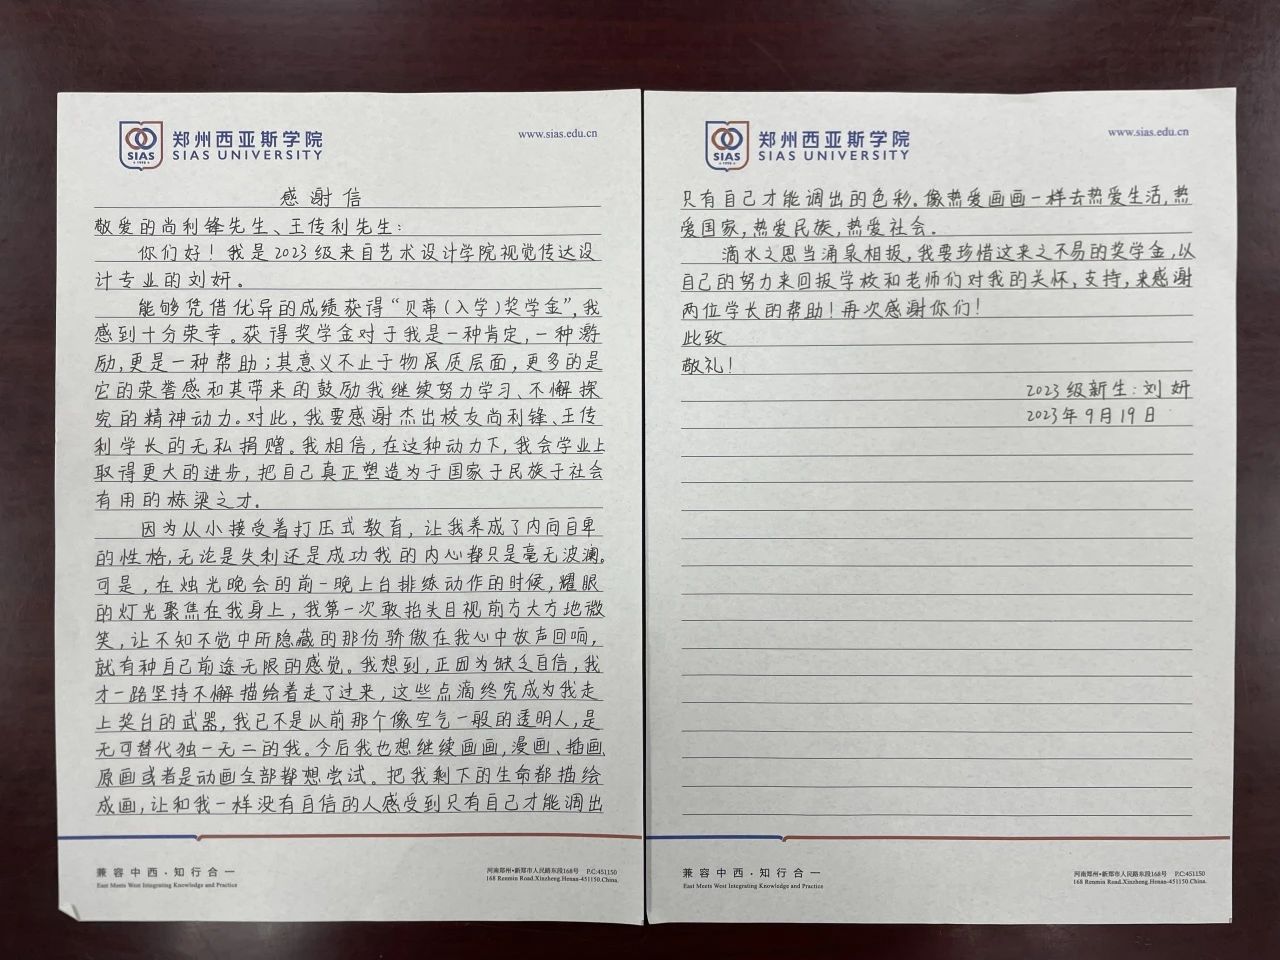 郑州西亚斯学院
SIAS UNIVERSITY
SIAS
1998
www.sias.edu.cn
感谢信
敬爱的尚利锋先生、王传利先生:
你们好!我是2023级来自艺术设计学院视觉传达设
计专业的刘妍。
能够凭借优异的成绩获得“贝蒂(入学)奖学金”,我
感到十分荣幸。获得奖学金对于我是一种肯定,一种激
励,更是一种帮助;其意义不止于物层质层面,更多的是
它的荣誉感和其带来的鼓励我继续努力学习、不懈探
究的精神动力。对此,我要感谢杰出校友尚利锋、王传
利学长的无私捐赠。我相信,在这种动力下,我会学业上
取得更大的进步,把自己真正塑造为于国家于民族于社会
有用的栋梁之才.
因为从小接受着打压式教育,让我养成了内向自卑
的性格,无论是失利还是成功我的内心都只是毫无波澜。
可是,在烛光晚会的前一晚上台排练动作的时候,耀眼
的灯光聚焦在我身上,我第一次敢抬头目视前方大方地微
笑,让不知不觉中所隐藏的那份骄傲在我心中放声回响,
就有种自己前途无限的感觉。我想到,正因为缺乏自信,我
才一路坚持不懈描绘着走了过来,这些点滴终究成为我走
上奖台的武器,我已不是以前那个像空气一般的透明人,是
无可替代独一无二的我。今后我也想继续画画,漫画、插画、
原画或者是动画全部都想尝试。把我剩下的生命都描绘
成画,让和我一样没有自信的人感受到只有自己才能调出
兼容中西·知行合一
East Meets West Integrating Knowledge and Practice
河南郑州·新郑市人民路东段168号 P.C:451150
168 Renmin Road.Xinzheng.Henan-451150.China
郑州西亚斯学院
SIAS UNIVERSITY
SIAS
1998
www.sias.edu.cn
只有自己才能调出的色彩.像热爱画画一样去热爱生活,热
爱国家,热爱民族,热爱社会.
滴水之恩当涌泉相报,我要珍惜这来之不易的奖学金,以
自己的努力来回报学校和老师们对我的关怀,支持,来感谢
两位学长的帮助!再次感谢你们!
此致
敬礼!
2023级新生:刘妍
2023年9月19日
兼容中西·知行合一
East Meets West Integrating Knowledge and Practice
河南郑州·新郑市人民路东段168号 P.C:451150
168 Renmin Road.Xinzheng.Henan-451150.China